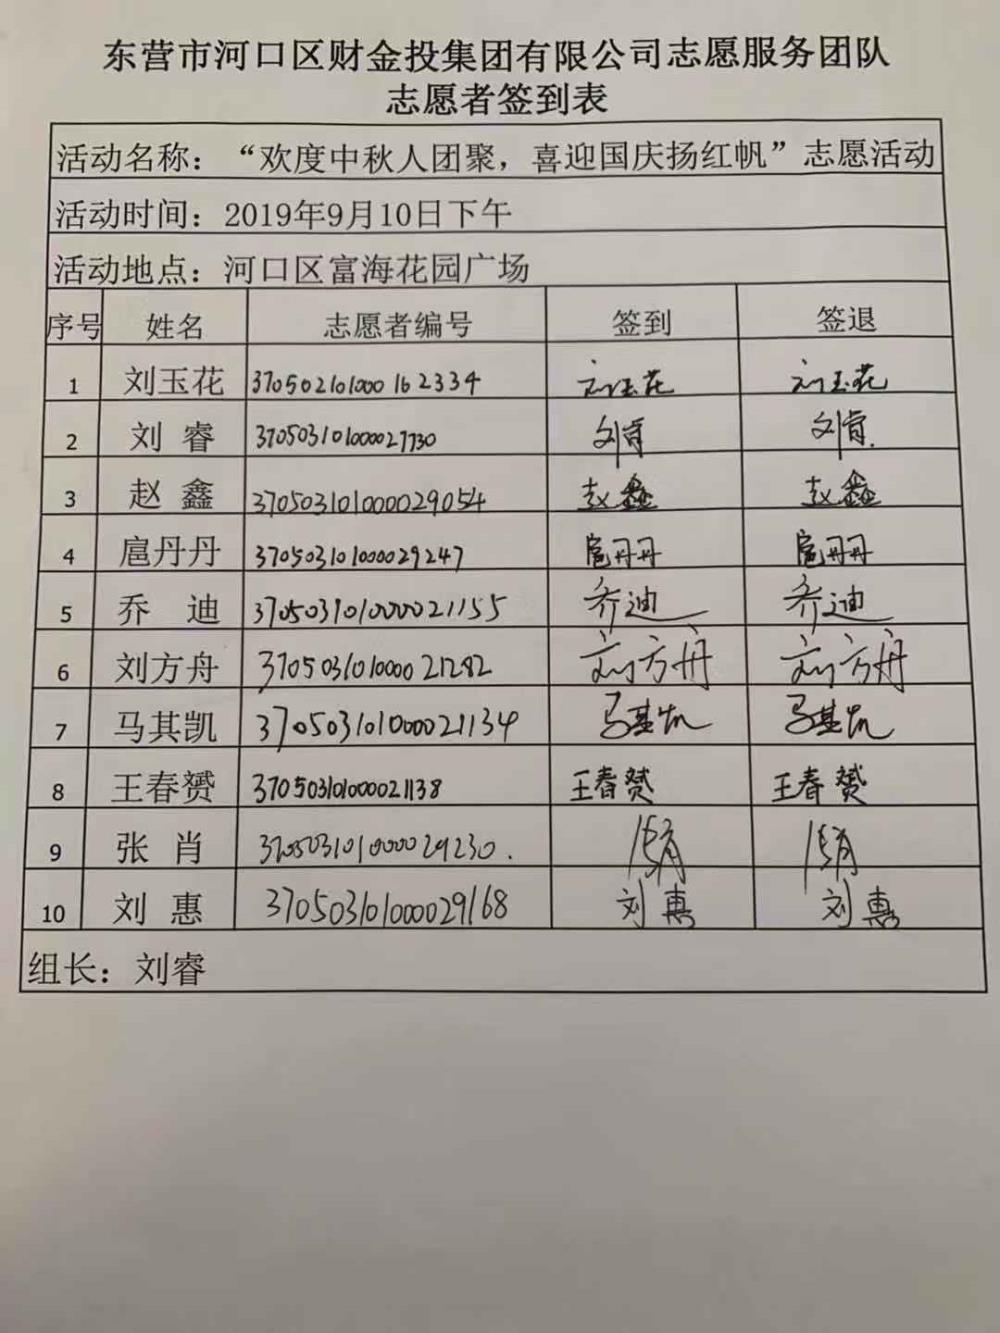 东营市河口区财金投集团有限公司志愿服务团队
志愿者签到表
活动名称：“欢度中秋人团聚，喜迎国庆扬红帆”志愿活动
活动时间：2019年9月10日下午
活动地点：河口区富海花园广场
序号 姓名 志愿者编号 签到 签退
1 刘玉花 370502101000162334 刘玉花 刘玉花
2 刘睿 370503101000027730 刘睿 刘睿.
3 赵鑫 370503101000029054 赵鑫 赵鑫
4 扈丹丹 370503101000029247 扈丹丹 扈丹丹
5 乔迪 370503101000021155 乔迪 乔迪
6 刘方舟 370503101000021282 刘方舟 刘方舟
7 马其凯 370503101000021134 马其凯 马其凯
8 王春赟 370503101000021138 王春赟 王春赟
9 张肖 370503101000029230. 张肖 张肖
10 刘惠 370503101000029168 刘惠 刘惠
组长：刘睿